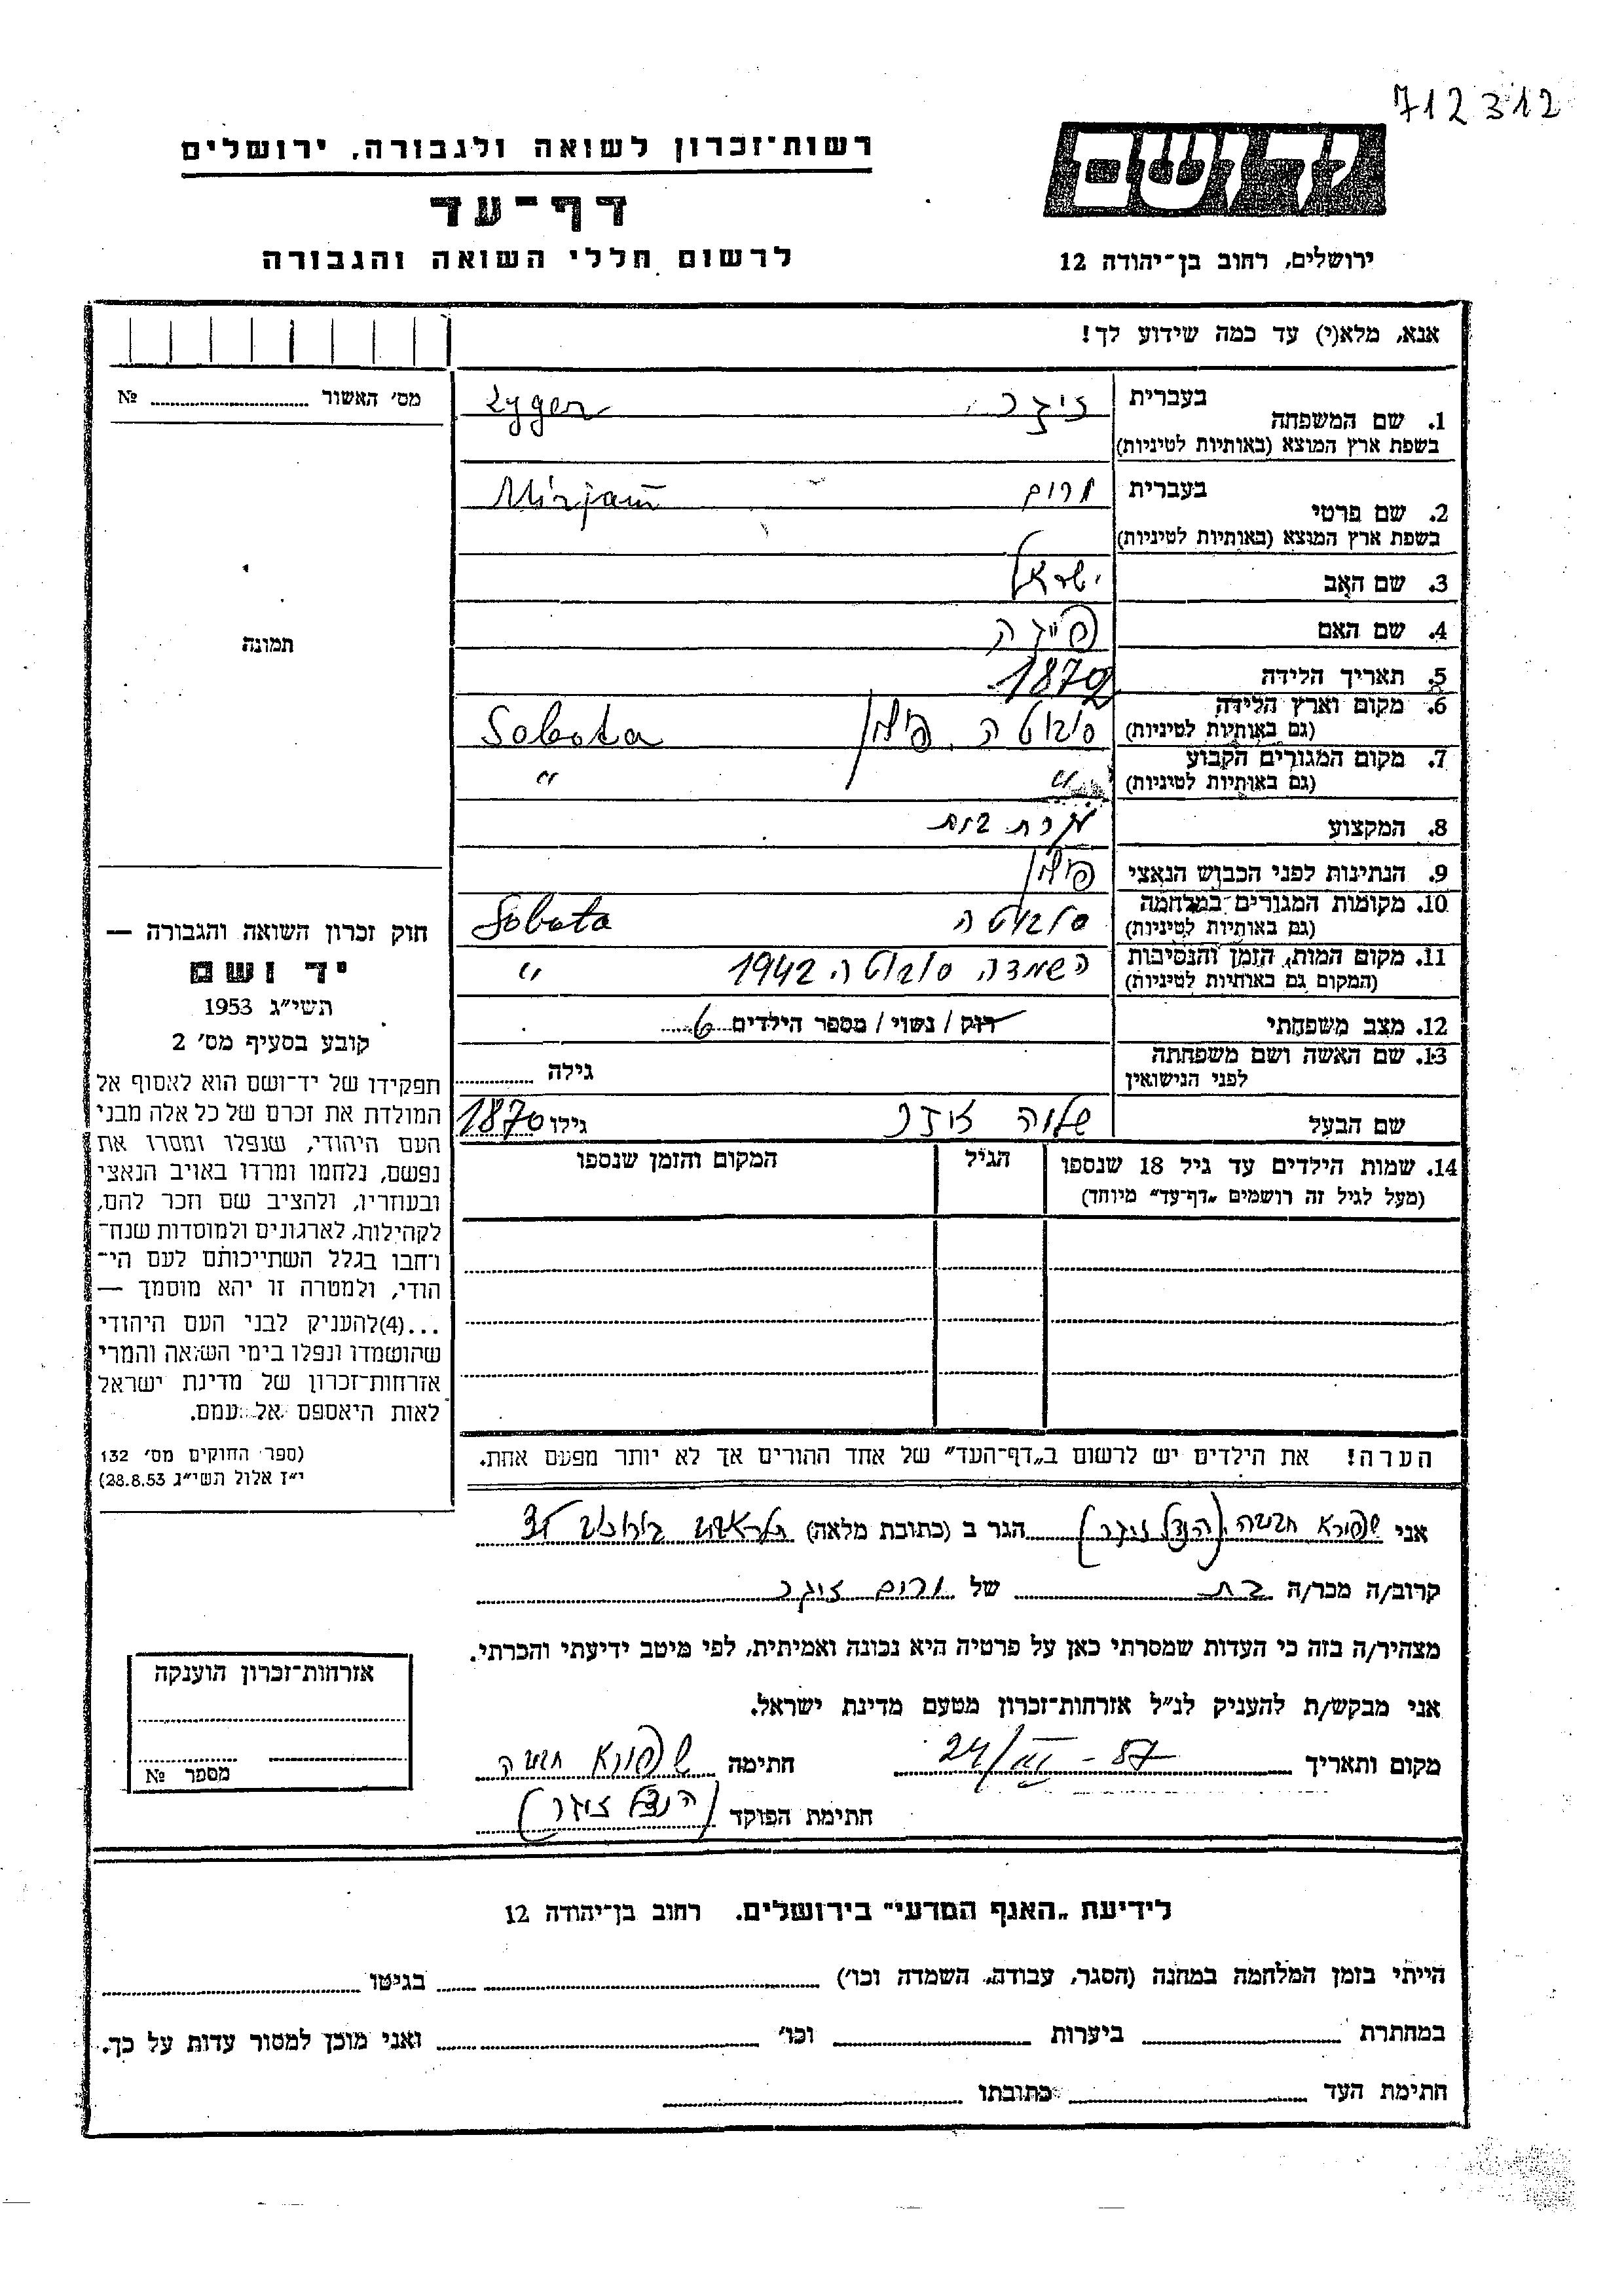 712312
יד ושם
רשות־זכרון לשואה ולגבורה, ירושלים
דף־עד
לרשום חללי השואה והגבורה
ירושלים, רחוב בן־יהודה 12
אנא, מלא(י) עד כמה שידוע לך!
מס' האשור № ........
1. שם המשפחה בעברית זיגר Zyger
בשפת ארץ המוצא (באותיות לטיניות)
2. שם פרטי בעברית מרים Mirjam
בשפת ארץ המוצא (באותיות לטיניות)
3. שם האב ישראל
4. שם האם פייגה
5. תאריך הלידה 1870
6. מקום וארץ הלידה סובוטה, פולין Sobota
(גם באותיות לטיניות)
7. מקום המגורים הקבוע " "
(גם באותיות לטיניות)
8. המקצוע עקרת בית
9. הנתינות לפני הכבוש הנאצי פולין
10. מקומות המגורים במלחמה סובוטה Sobota
(גם באותיות לטיניות)
11. מקום המות, הזמן והנסיבות השמדה סובוטה 1942 "
(המקום גם באותיות לטיניות)
12. מצב משפחתי רווק / נשוי / מספר הילדים 6
13. שם האשה ושם משפחתה גילה ........
לפני הנישואין
שם הבעל שלמה זיגר גילו 1870
14. שמות הילדים עד גיל 18 שנספו הגיל המקום והזמן שנספו
(מעל לגיל זה רושמים „דף־עד" מיוחד)
הערה! את הילדים יש לרשום ב„דף־העד" של אחד ההורים אך לא יותר מפעם אחת.
תמונה
חוק זכרון השואה והגבורה —
יד ושם
תשי"ג 1953
קובע בסעיף מס' 2
תפקידו של יד־ושם הוא לאסוף אל
המולדת את זכרם של כל אלה מבני
העם היהודי, שנפלו ומסרו את
נפשם, נלחמו ומרדו באויב הנאצי
ובעוזריו, ולהציב שם וזכר להם,
לקהילות, לארגונים ולמוסדות שנח־
רחבו בגלל השתייכותם לעם הי־
הודי, ולמטרה זו יהא מוסמך —
...(4)להעניק לבני העם היהודי
שהושמדו ונפלו בימי השואה והמרי
אזרחות־זכרון של מדינת ישראל
לאות היאספם אל עמם.
(ספר החוקים מס' 132
י"ז אלול תשי"ג 28.8.53)
אני שפירא חנה (הנצל זיגר) הגר ב (כתובת מלאה)
קרוב/ה מכר/ה בת של מרים זיגר
מצהיר/ה בזה כי העדות שמסרתי כאן על פרטיה היא נכונה ואמיתית, לפי מיטב ידיעתי והכרתי.
אני מבקש/ת להעניק לנ"ל אזרחות־זכרון מטעם מדינת ישראל.
מקום ותאריך 24/ -87 חתימה שפירא
חתימת הפוקד
אזרחות־זכרון הוענקה
מספר №
לידיעת „האגף המדעי" בירושלים. רחוב בן־יהודה 12
הייתי בזמן המלחמה במחנה (הסגר, עבודה, השמדה וכו') ........ בגיטו ........
במחתרת ........ ביערות ........ וכו' ........ ואני מוכן למסור עדות על כך.
חתימת העד ........ כתובתו ........